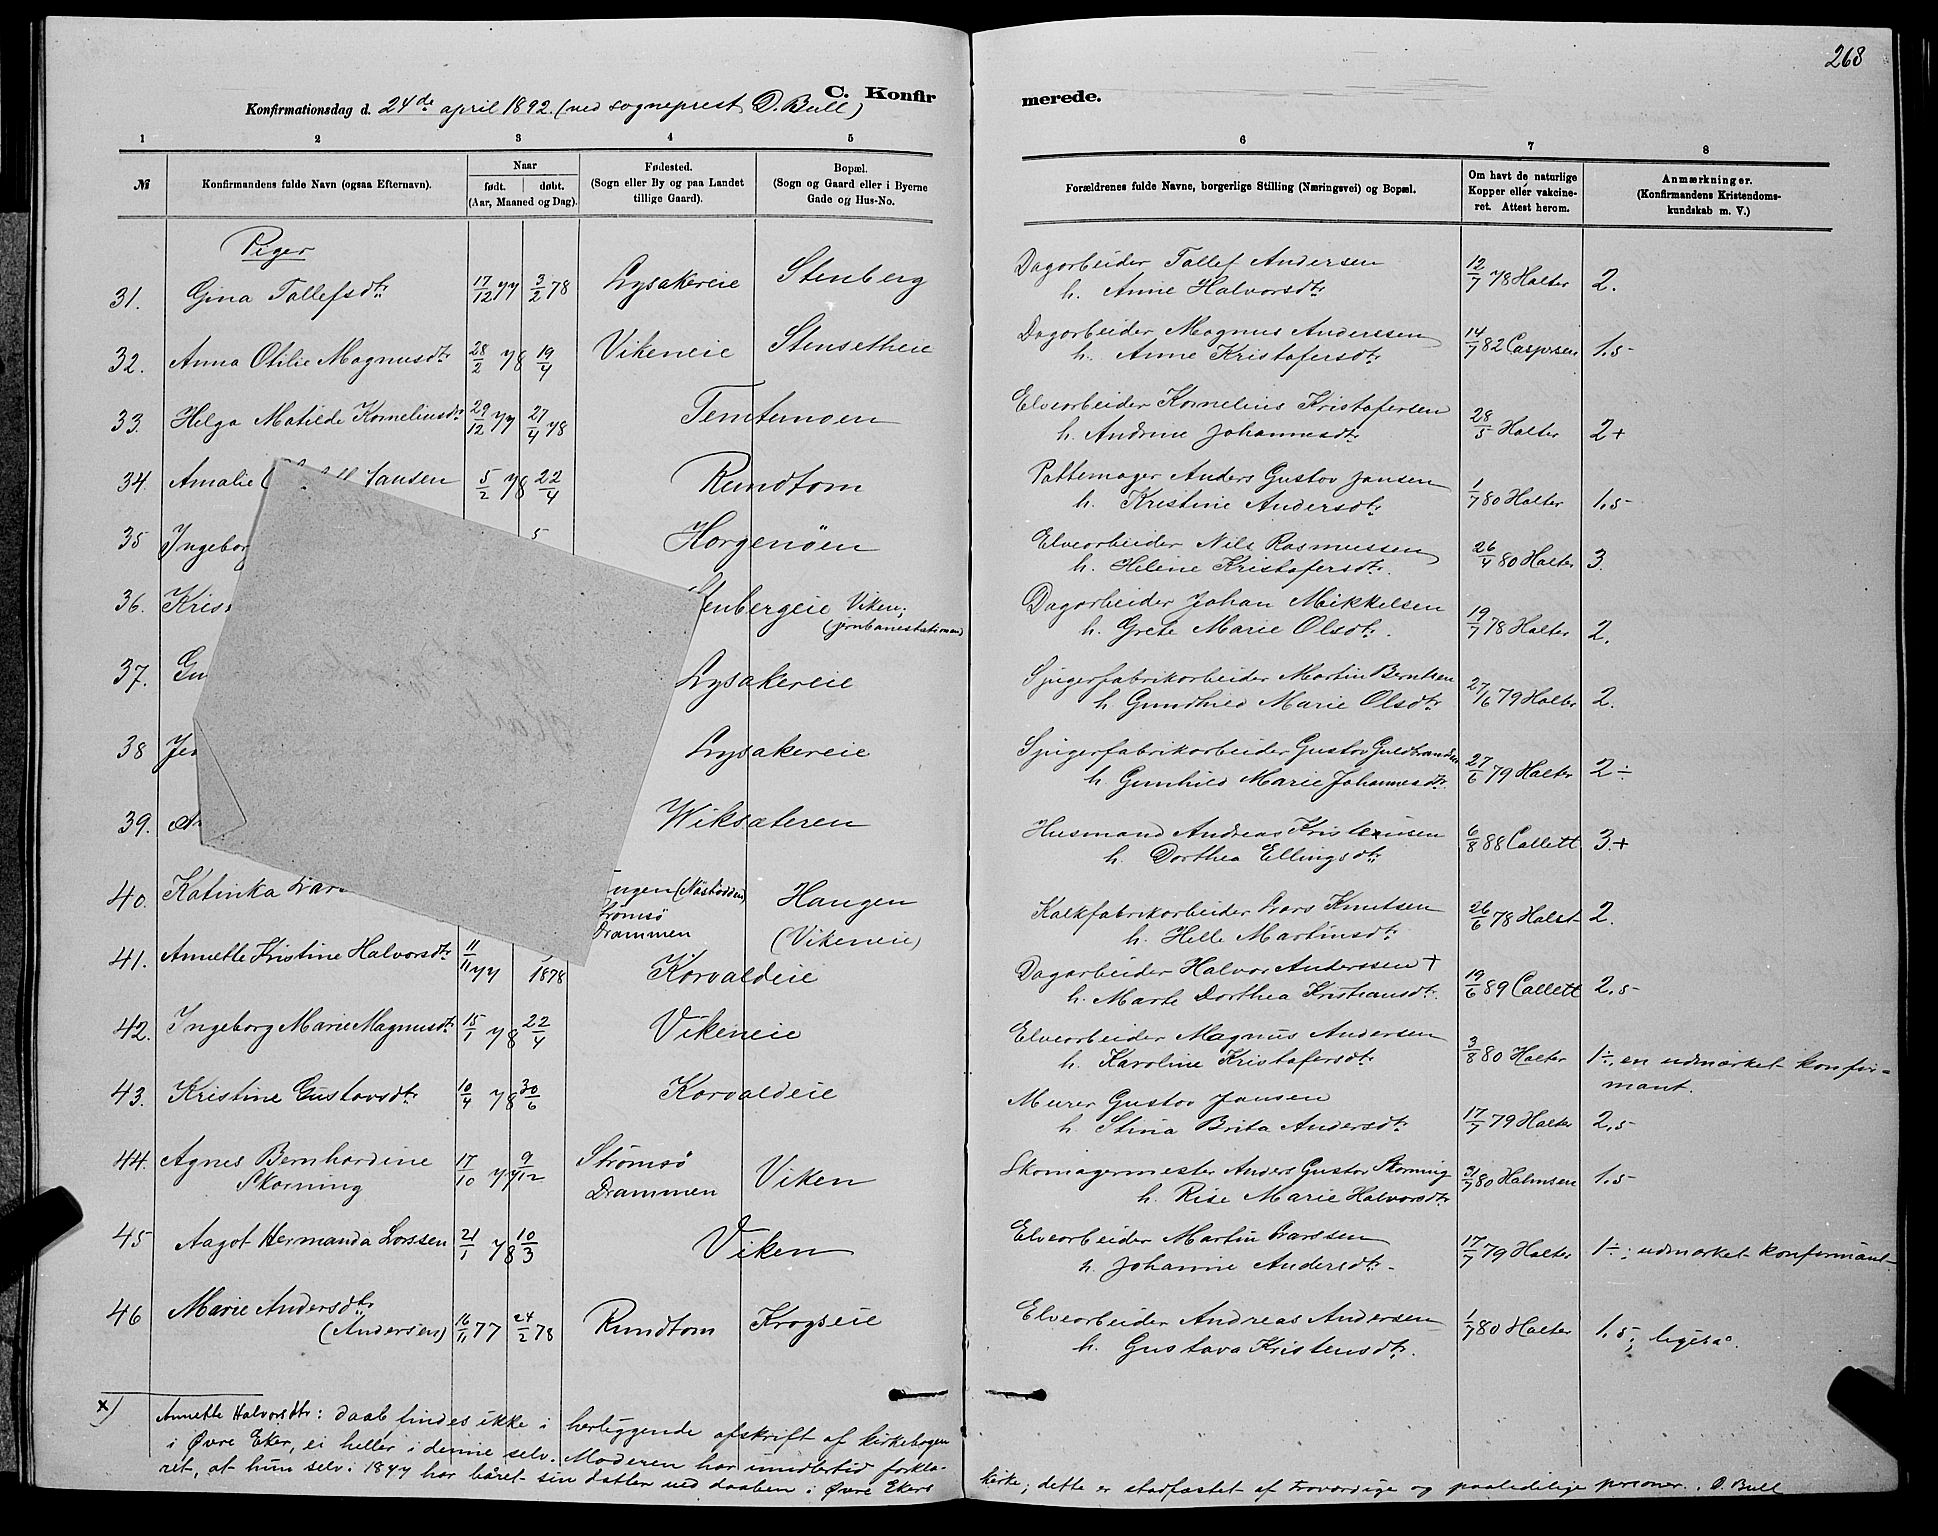 268
C. Konfir
merede.
Konfirmationsdag d. 24de april 1892. (ved sogneprest D. Bull)
1 2 3 4 5
6 7 8
№
Konfirmandens fulde Navn (ogsaa Efternavn).
Naar
født. døbt.
(Aar, Maaned og Dag).
Fødested.
(Sogn eller By og paa Landet
tillige Gaard).
Bopæl.
(Sogn og Gaard eller i Byerne
Gade og Hus-No.
Forældrenes fulde Navne, borgerlige Stilling (Næringsvei) og Bopæl.
Om havt de naturlige
Kopper eller vakcine-
ret. Attest herom.
Anmærkninger.
(Konfirmandens Kristendoms-
kundskab m. V.)
Piger
31. Gina Tollefsdtr 17/12 77 3/2 78 Lysakereie Stenberg
Dagarbeider Tollef Andersen
h. Anne Halvorsdtr 12/7 78 Halter 2.
32. Anna Otilie Magnusdtr 28/2 78 19/4 Vikeneie Stensetheie
Dagarbeider Magnus Anderssen
h. Anne Kristofersdtr 14/7 82 Caspersen 1,5
33. Helga Matilde Korneliusdtr 29/12 77 27/4 78 Temtemoen
Elvearbeider Kornelius Kristofersen
h. Andrine Johannesdtr 28/5 Halter 2+
34. Amalie Jansen 5/2 78 22/4 Rundtom
Pottemager Anders Gustav Jansen
h. Kristine Andersdtr 1/7 80 Halter 1,5
35 Ingeborg 5 Horgenöen
Elvearbeider Nils Rasmussen
h. Heline Kristofersdtr. 26/4 80 Halter 3.
36. Kris Stenbergeie Viken;
(jernbanestationen)
Dagarbeider Johan Mikkelsen
h. Grete Marie Olsdtr. 19/7 78 Halter 2.
37. Gu Lysakereie
Spigerfabrikarbeider Martin Berntsen
h. Gundhild Marie Olsdtr 27/6 79 Halter 2.
38 Jen Lysakereie
Spigerfabrikarbeider Gustav Guldbrandsen
h. Gunhild Marie Johannesdtr. 27/6 79 Halter 2÷
39. Wiksateren
Husmand Andreas Kristensen
h. Dorthea Ellingsdtr 6/8 88 Collett 3.+
40. Katinka Lar ngen (Næstodden) Haugen
Strömsö
Drammen (Vikeneie)
Kalkfabrikarbeider Lars Knutsen
h. Helle Martinsdtr 26/6 78 Halst 2.
41. Annette Kristine Halvorsdtr 11/11 77 1878 Korvaldeie
Dagarbeider Halvor Anderssen +
h. Marte Dorthea Kristiansdtr. 19/6 89 Collett 2,5
42. Ingeborg Marie Magnusdtr 15/1 78 22/4 Vikeneie
Elvearbeider Magnus Andersen
h. Karoline Kristofersdtr 3/8 80 Halter 1÷, en udmærket konfir-
mant.
43. Kristine Gustavsdtr 10/4 78 30/6 Korvaldeie
Murer Gustav Jansen
h. Stina Brita Andersdtr 17/7 79 Halter 2,5
44. Agnes Bernhardine
Skorning 17/10 77 9/12 Strømsö
Drammen Viken
Skomagermester Anders Gustav Skorning
h. Rise Marie Halvorsdtr 31/7 80 Halmsen 1,5
45 Aagot Hermanda Larssen 21/1 78 10/3 Viken
Elvearbeider Martin Larssen
h. Johanne Andersdtr. 17/7 79 Halter 1÷; udmærket konfirmant
46 Marie Andersdtr
(Andersen) 16/11 77 24/2 78 Rundtom Krogseie
Elvearbeider Andreas Andersen
h. Gustava Kristensdtr. 1/7 80 Halter 1,5; ligesaa.
x) Annette Halvorsdtr: daab findes ikke i herliggende afskrift af kirkebogen
i Øvre Eker, ei heller i denne selv. Moderen har imidlertid forkla-
ret, at hun selv i 1877 har båret sin datter ved daaben i Øvre Ekers
kirke; dette er stadfæstet af troværdige og paalidelige personer. D. Bull